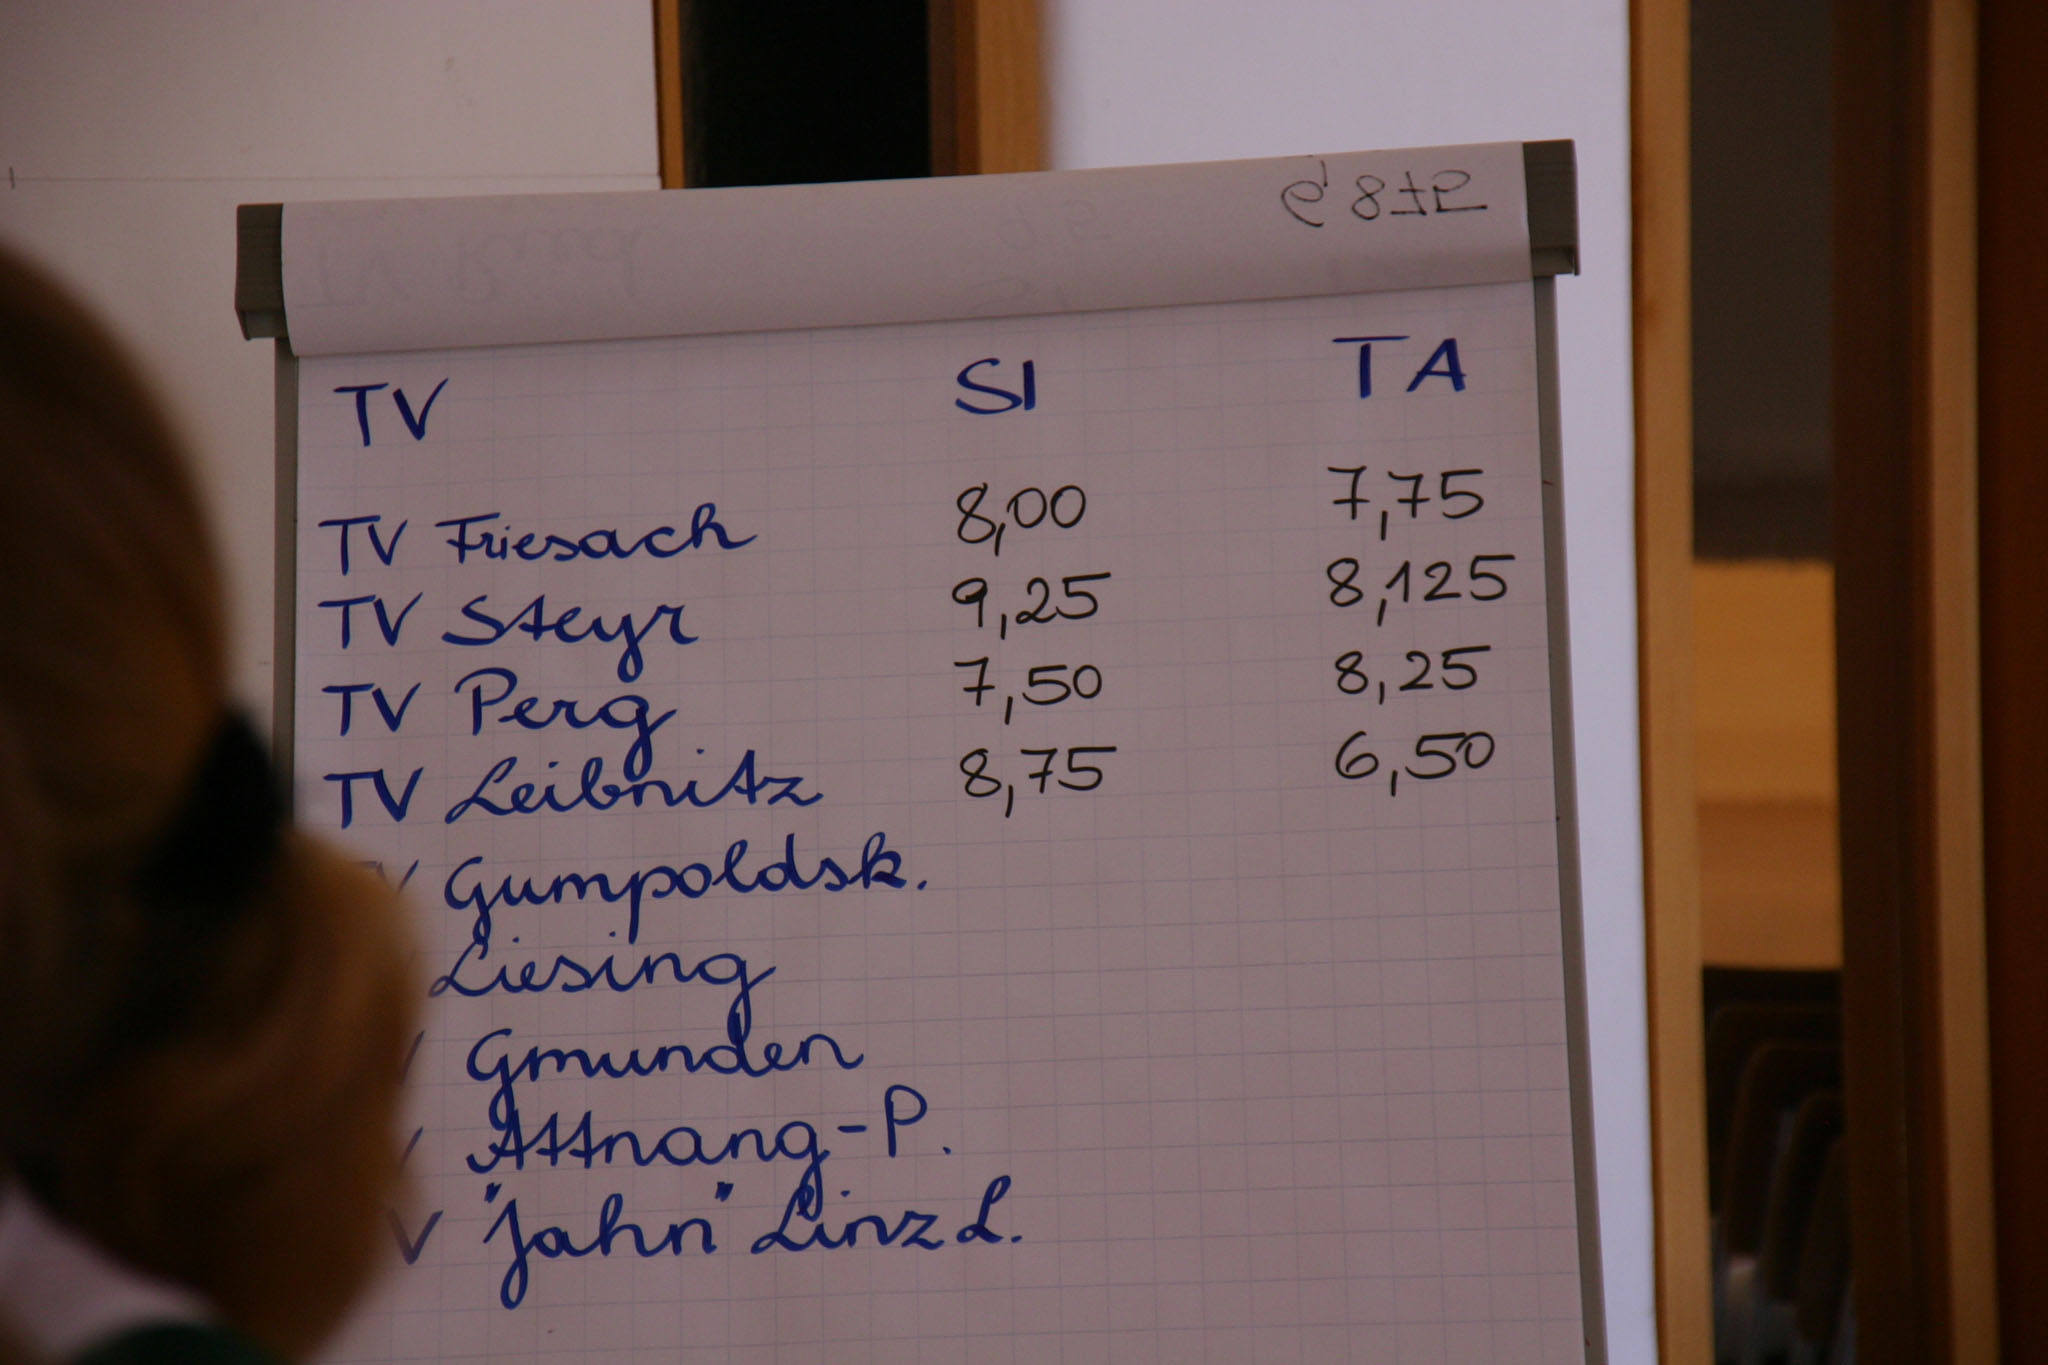 TV SI TA
TV Friesach 8,00 7,75
TV Steyr 9,25 8,125
TV Perg 7,50 8,25
TV Leibnitz 8,75 6,50
V Gumpoldsk.
Liesing
V Gmunden
V Attnang-P.
V "Jahn" Linz L.